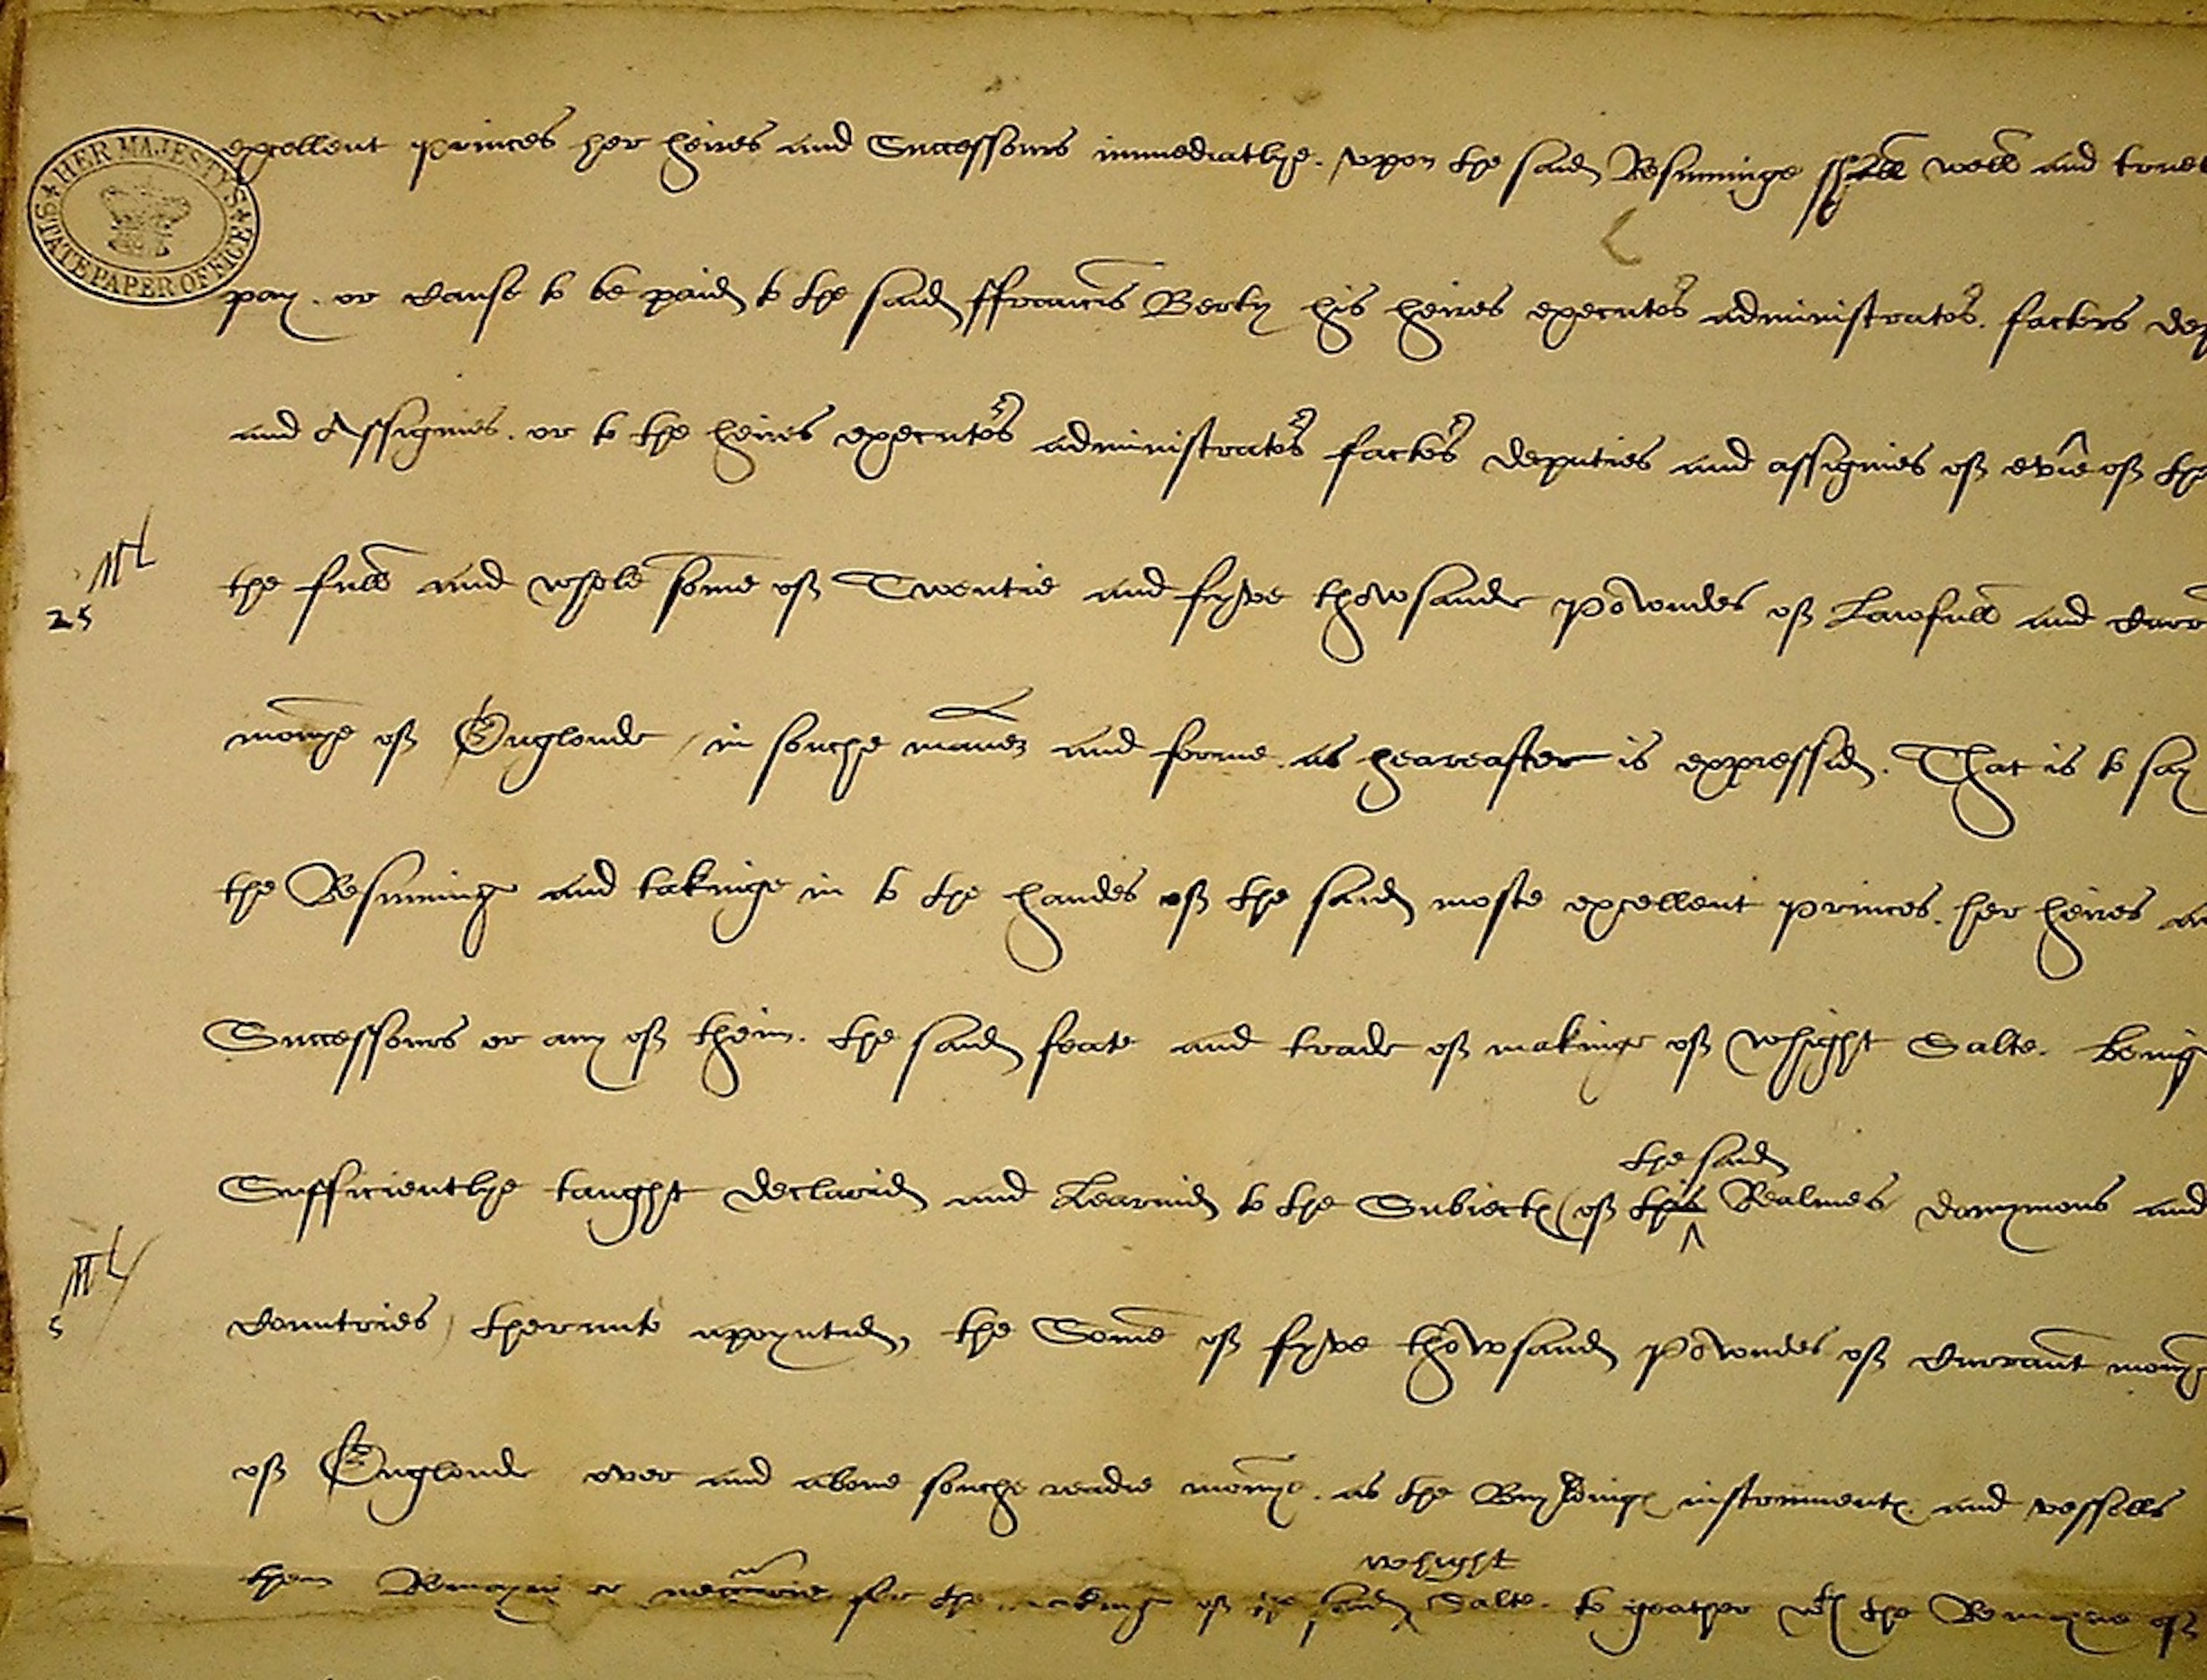 HER MAJESTY'S STATE PAPER OFFICE
excellent princes her heires and Successours immediatlye. vpon the said Resuminge shall well and truel
pay. or cause to be paid to the said ffrancis Berty his heires executors administrators. factors dep
and Assignies. or to the heires executors administrators factors deputies and assignies of evie of the
Ml
25
the full and whole some of Twentie and fyve thowsande Powndes of Lawfull and curr
monye of Englonde / in souche maner and forme. as heareafter is expressid. That is to say
the Resuminge and takinge in to the handes of the said moste excellent princes. her heires an
Successours or any of theim. the said feate and trade of makinge of whight Salte. being
the said
Sufficientlye taught declarid and Learnid to the Subiectes of this Realmes domynions and
Ml
5
Countries / therunto apoyntid, the Some of fyve thowsand Powndes of currant monye
of Englonde over and above souche readie monye. as the Buyldinges instrumentes. and vessells
whight
then Remayni or necessarie for the making of the said Salte. to geather wth the Remayne of